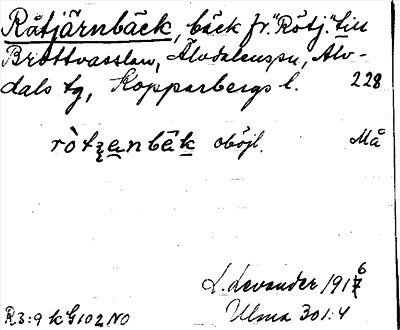 Råtjärnbäck, bäck fr. "Råtj." till
Brottvasslan, Älvdalens sn, Älv-
dals tg, Kopparbergs l. 228
ròtʒenbäk oböjl. Må
L. Levander 1916
R3:9 k G102 NO Ulma 301:4